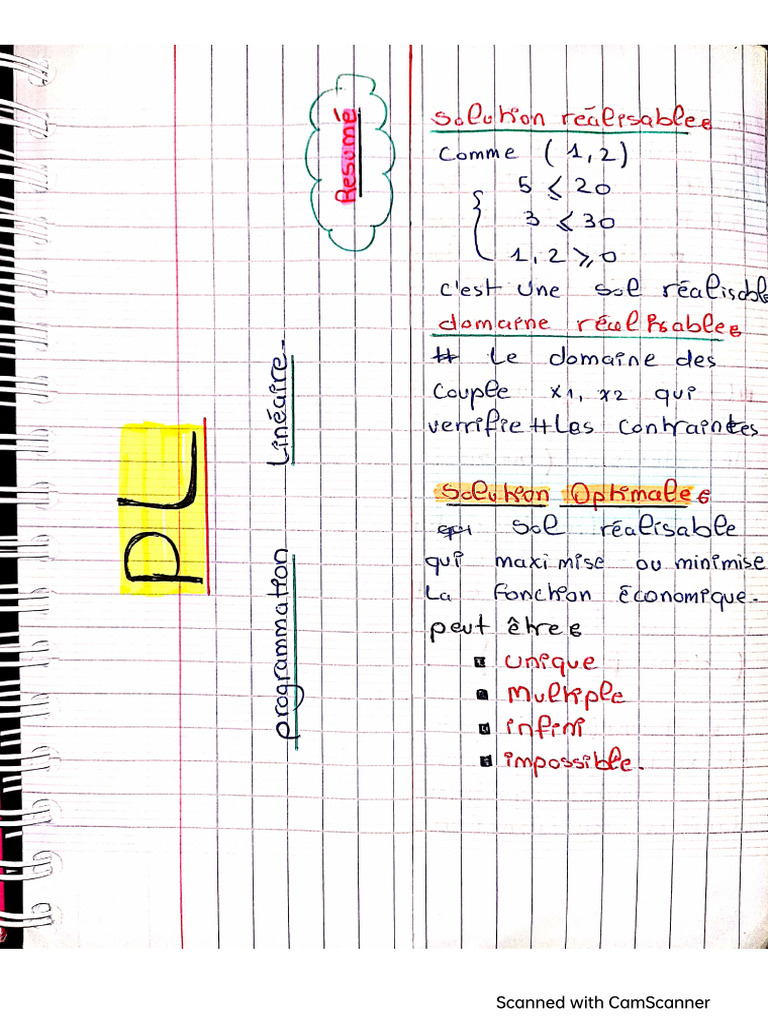 PL
programmation Linéaire.
Resumé
Solution réalisable :
Comme (1,2)
5 ⩽ 20
3 ⩽ 30
1, 2 ⩾ 0
c'est une sol réalisable
domaine réalisable :
# Le domaine des
Couple x1, x2 qui
verrifie # Les contraintes
Solution Optimale :
Sol réalisable
qui maximise ou minimise
La fonction économique.
peut être :
▪ unique
▪ Multiple
▪ infini
▪ impossible.
Scanned with CamScanner